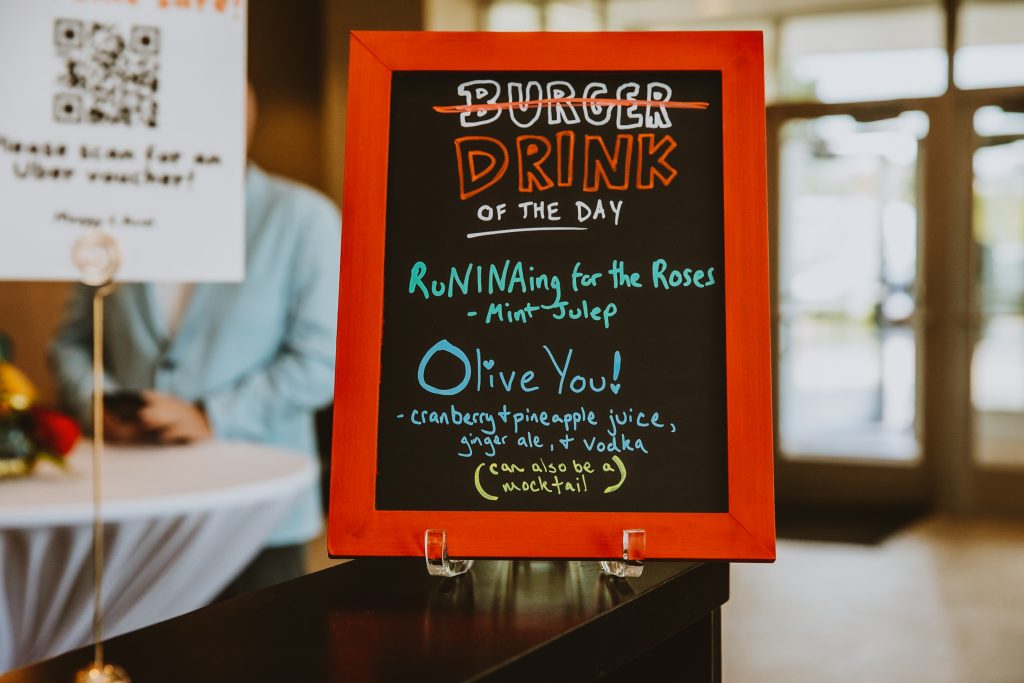 Please scan for an
Uber voucher!
BURGER
DRINK
OF THE DAY
RuNINAing for the Roses
- Mint Julep
Olive You!
- cranberry + pineapple juice,
ginger ale, + vodka
(can also be a
mocktail)